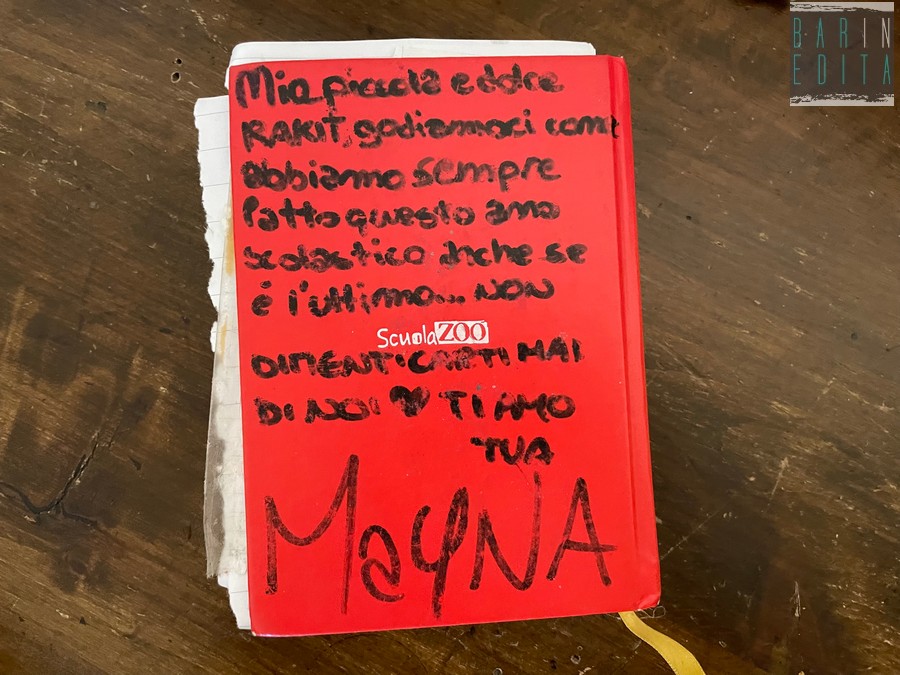 Mia piccola e dolce
RAKIT, godiamoci come
abbiamo sempre
fatto questo anno
scolastico anche se
é l'ultimo... NON
ScuolaZOO
DIMENTICARTI MAI
DI NOI ♥ TI AMO
TUA
MaYNA
BARIN
EDITA